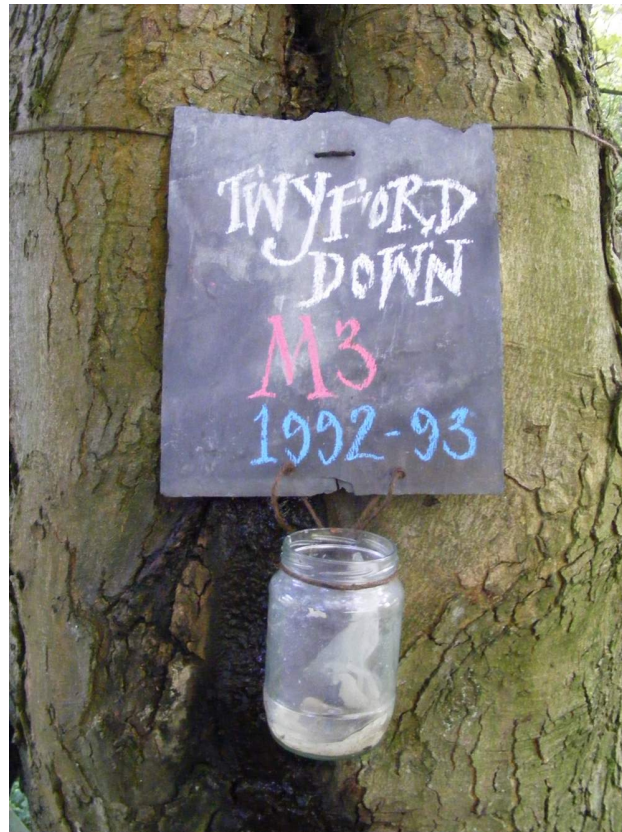 TWYFORD
DOWN
M3
1992-93